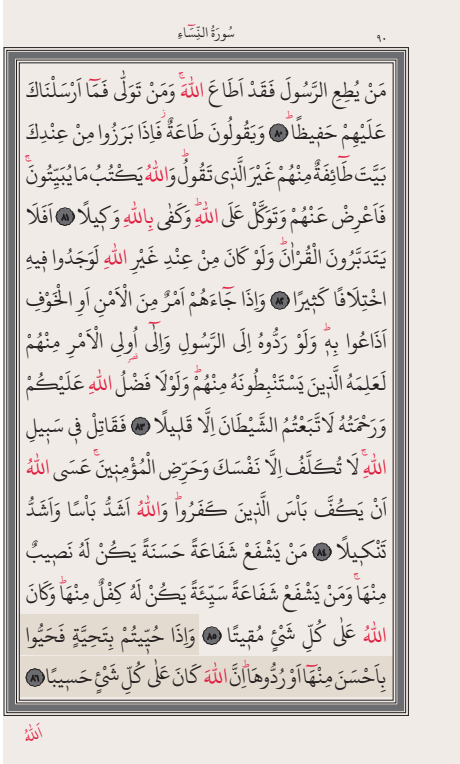 سُورَةُ النِّسَٓاءِ
٩٠
مَنْ يُطِعِ الرَّسُولَ فَقَدْ اَطَاعَ اللّٰهَۚ وَمَنْ تَوَلّٰى فَمَٓا اَرْسَلْنَاكَ
عَلَيْهِمْ حَف۪يظًاۜ ﴿٨٠﴾ وَيَقُولُونَ طَاعَةٌۘ فَاِذَا بَرَزُوا مِنْ عِنْدِكَ
بَيَّتَ طَٓائِفَةٌ مِنْهُمْ غَيْرَ الَّذ۪ي تَقُولُۜ وَاللّٰهُ يَكْتُبُ مَا يُبَيِّتُونَۚ
فَاَعْرِضْ عَنْهُمْ وَتَوَكَّلْ عَلَى اللّٰهِۜ وَكَفٰى بِاللّٰهِ وَك۪يلًا ﴿٨١﴾ اَفَلَا
يَتَدَبَّرُونَ الْقُرْاٰنَۜ وَلَوْ كَانَ مِنْ عِنْدِ غَيْرِ اللّٰهِ لَوَجَدُوا ف۪يهِ
اخْتِلَافًا كَث۪يرًا ﴿٨٢﴾ وَاِذَا جَٓاءَهُمْ اَمْرٌ مِنَ الْاَمْنِ اَوِ الْخَوْفِ
اَذَاعُوا بِه۪ۜ وَلَوْ رَدُّوهُ اِلَى الرَّسُولِ وَاِلٰٓى اُو۬لِي الْاَمْرِ مِنْهُمْ
لَعَلِمَهُ الَّذ۪ينَ يَسْتَنْبِطُونَهُ مِنْهُمْۜ وَلَوْلَا فَضْلُ اللّٰهِ عَلَيْكُمْ
وَرَحْمَتُهُ لَاتَّبَعْتُمُ الشَّيْطَانَ اِلَّا قَل۪يلًا ﴿٨٣﴾ فَقَاتِلْ ف۪ي سَب۪يلِ
اللّٰهِۚ لَا تُكَلَّفُ اِلَّا نَفْسَكَ وَحَرِّضِ الْمُؤْمِن۪ينَۚ عَسَى اللّٰهُ
اَنْ يَكُفَّ بَأْسَ الَّذ۪ينَ كَفَرُواۜ وَاللّٰهُ اَشَدُّ بَأْسًا وَاَشَدُّ
تَنْك۪يلًا ﴿٨٤﴾ مَنْ يَشْفَعْ شَفَاعَةً حَسَنَةً يَكُنْ لَهُ نَص۪يبٌ
مِنْهَاۚ وَمَنْ يَشْفَعْ شَفَاعَةً سَيِّئَةً يَكُنْ لَهُ كِفْلٌ مِنْهَاۜ وَكَانَ
اللّٰهُ عَلٰى كُلِّ شَيْءٍ مُق۪يتًا ﴿٨٥﴾ وَاِذَا حُيّ۪يتُمْ بِتَحِيَّةٍ فَحَيُّوا
بِاَحْسَنَ مِنْهَٓا اَوْ رُدُّوهَاۜ اِنَّ اللّٰهَ كَانَ عَلٰى كُلِّ شَيْءٍ حَس۪يبًا ﴿٨٦﴾
اَللّٰهُ